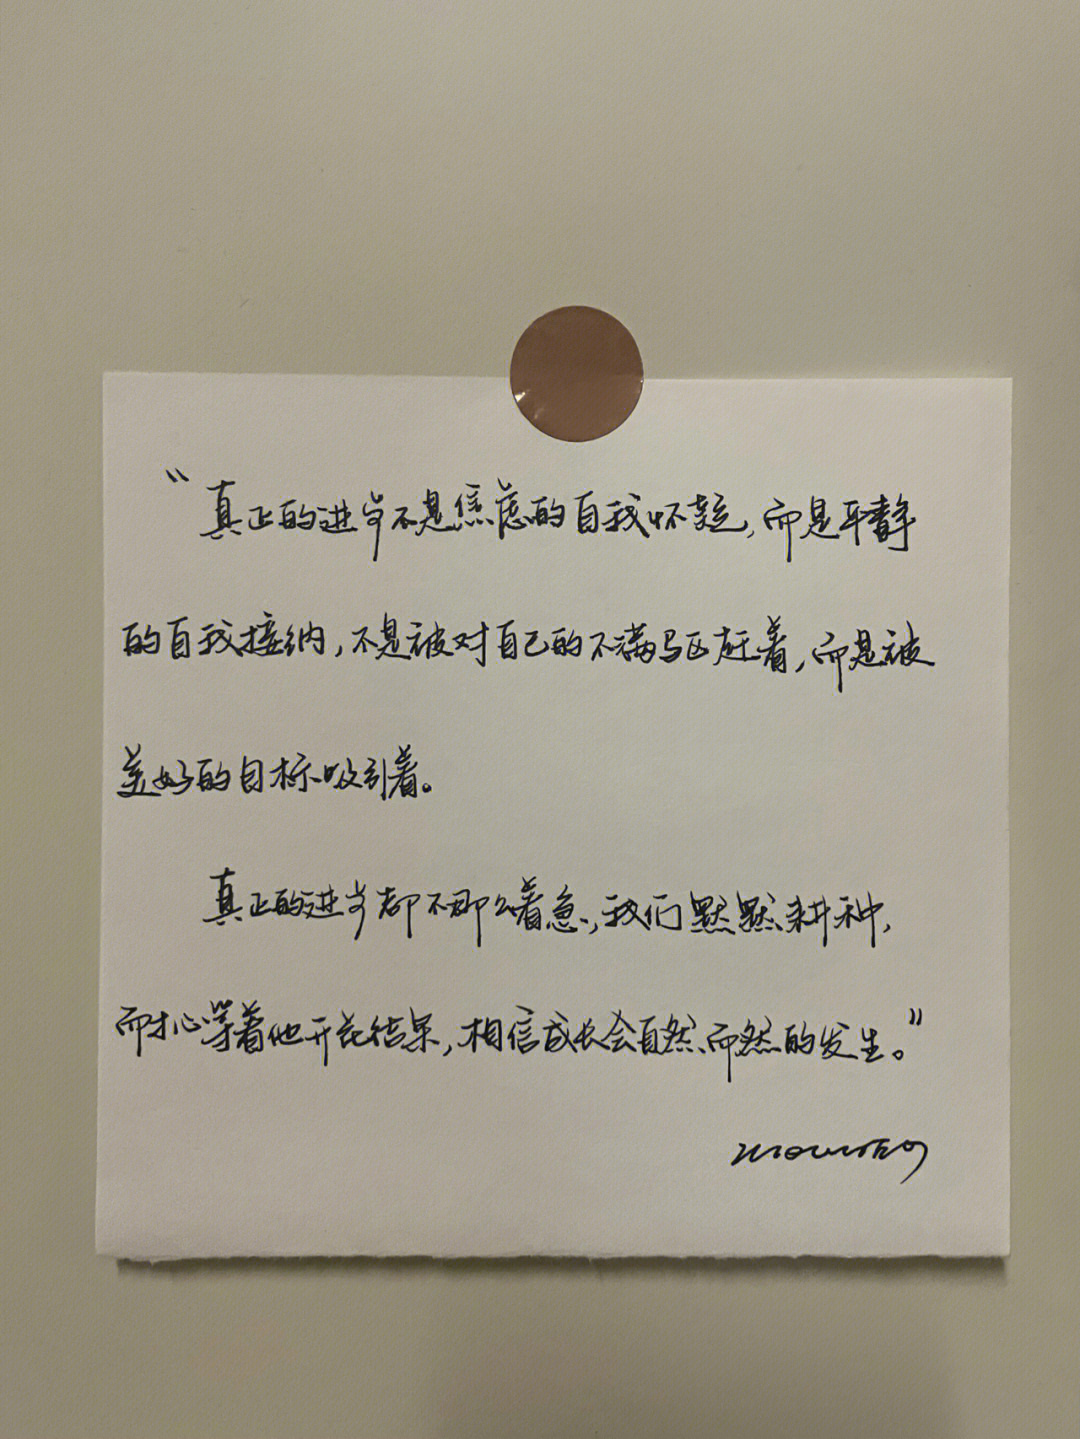 “真正的进步不是焦虑的自我怀疑，而是平静
的自我接纳，不是被对自己的不满驱赶着，而是被
美好的目标吸引着。
真正的进步都不那么着急，我们默默耕种，
耐心等着他开花结果，相信成长会自然而然的发生。”